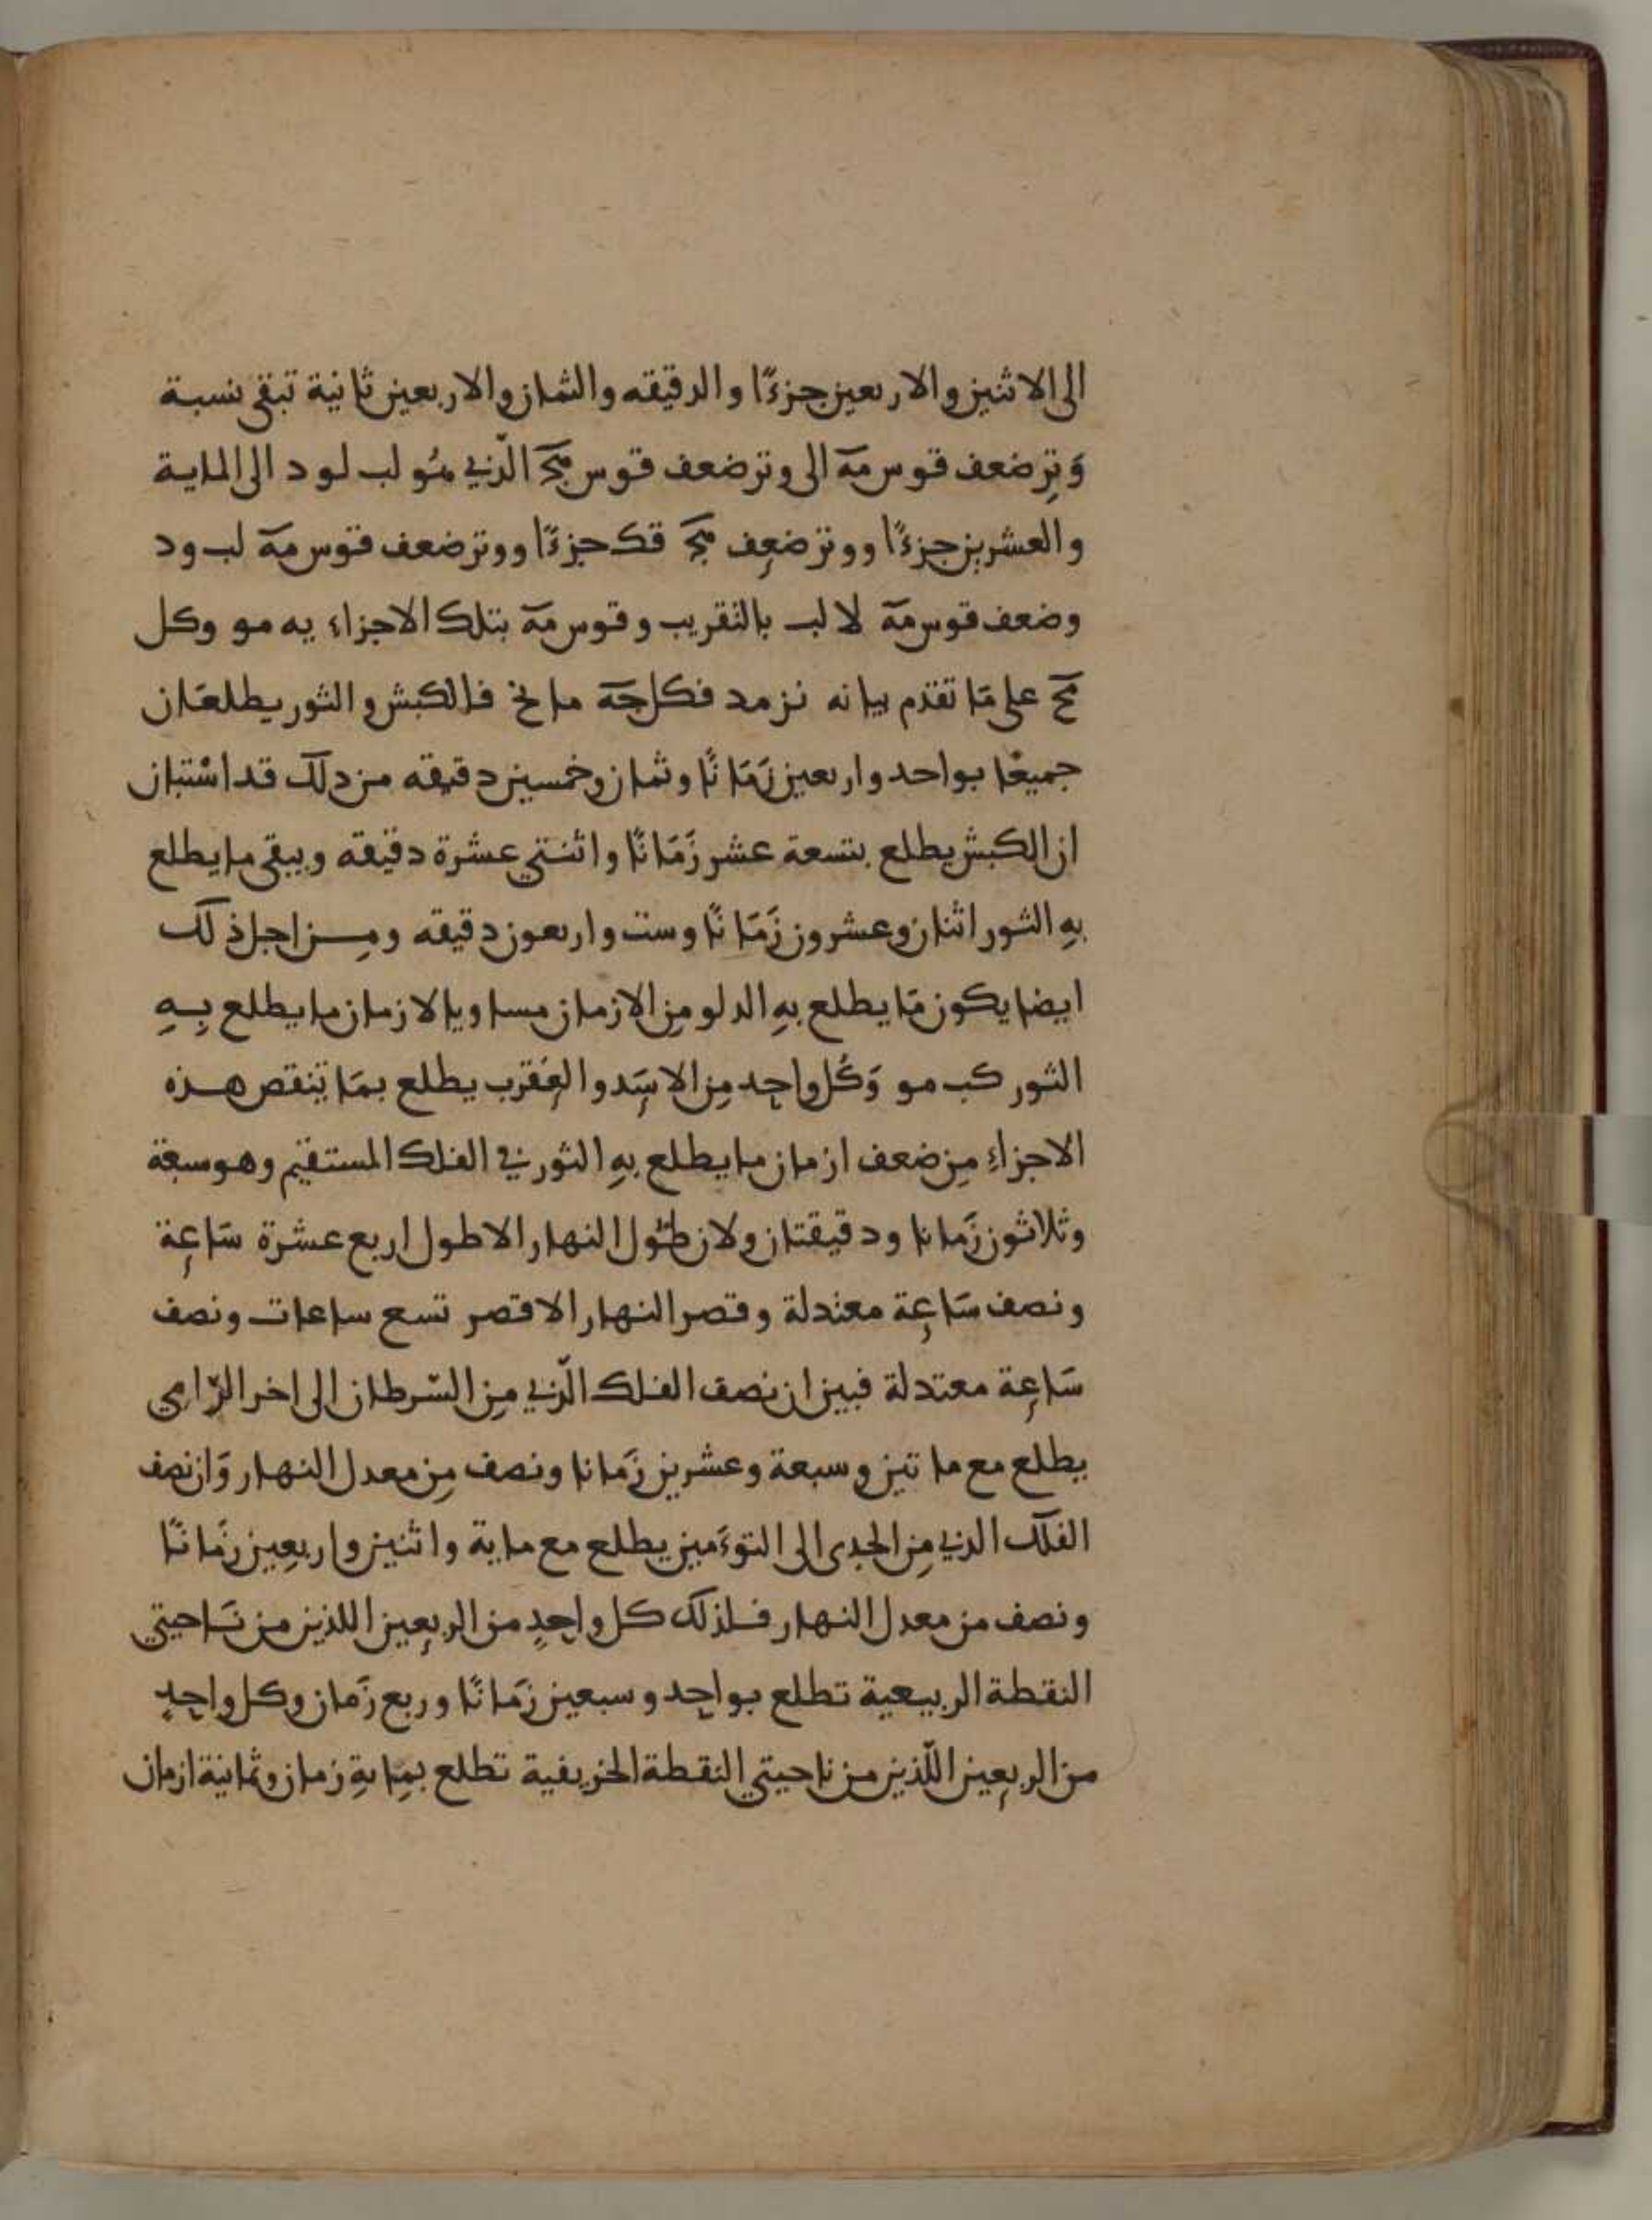 الى الاثنين والاربعين جزءًا والدقيقه والثمان والاربعين ثانية تبقى نسبة
وَتِر ضعف قوس مه الى وتر ضعف قوس الّذي هُو لب لو د الى الماية
والعشرين جزءًا ووتر ضعِف قك جزءًا ووتر ضعف قوس مه لب ود
وضعف قوس مه لا لب بالتقريب وقوس مه بتلك الاجزاء يه مو وكل
مح على مَا تقدّم بيانه نز مد فكل حه ما نح فالكبش والثور يطلعَان
جميعًا بواحد واربعين زَمَانًا وثمان وخمسين دقيقه من دلك قد اسْتبان
ان الكبش يطلع بتسعة عشر زَمَانًا واثنتي عشرة دقيقه ويبقى ما يطلع
بهِ الثور اثنان وعشرون زَمَانًا وست واربعون دقيقه ومِن اجل ذلك
ايضا يكون مَا يطلع بهِ الدلو مِن الازمان مساويا لازمان ما يطلع بِهِ
الثور كب مو وَكُل واحِد مِن الاسَد والعقرب يطلع بمَا تنقص هذه
الاجزاءِ مِن ضعف ازمان ما يطلع بهِ الثور في الفلك المستقيم وهو سبعَة
وثلاثون زَمانا ودقيقتان ولان طُول النهار الاطول اربع عشرة سَاعِة
ونصف سَاعِة معتدلة وقصر النهار الاقصر تسع ساعات ونصف
سَاعِة معتدلة فبين ان نصف الفلك الّذي مِن السّرطان الى اخر الرّامي
يطلع مع ماتين وسبعة وعشرين زَمانا ونصف مِن معدل النهار وَان نصف
الفلك الذي مِن الجدى الى التوءَمين يطلع مع ماية واثنين واربعِين زَمَانًا
ونصف من معدل النهار فلذلك كل واحِدٍ من الربعِين اللذين من نَاحيتي
النقطة الربيعية تطلع بواحِد وسبعين زَمَانًا وربع زَمان وكل واحِدٍ
من الربعِين اللّذين من ناحيتي النقطة الخريفية تطلع بمِايةِ زمان وثمانية ازمان